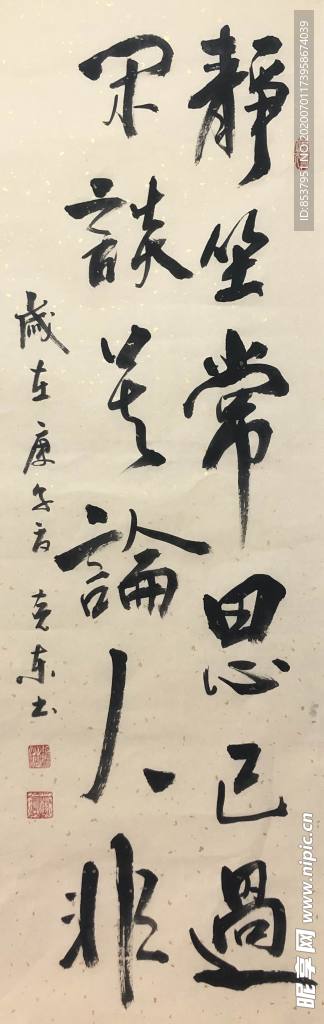 靜坐常思己過
閑談莫論人非
歲在庚子 東书
ID:8537951 NO:20200701173958674039
昵享网 www.nipic.cn